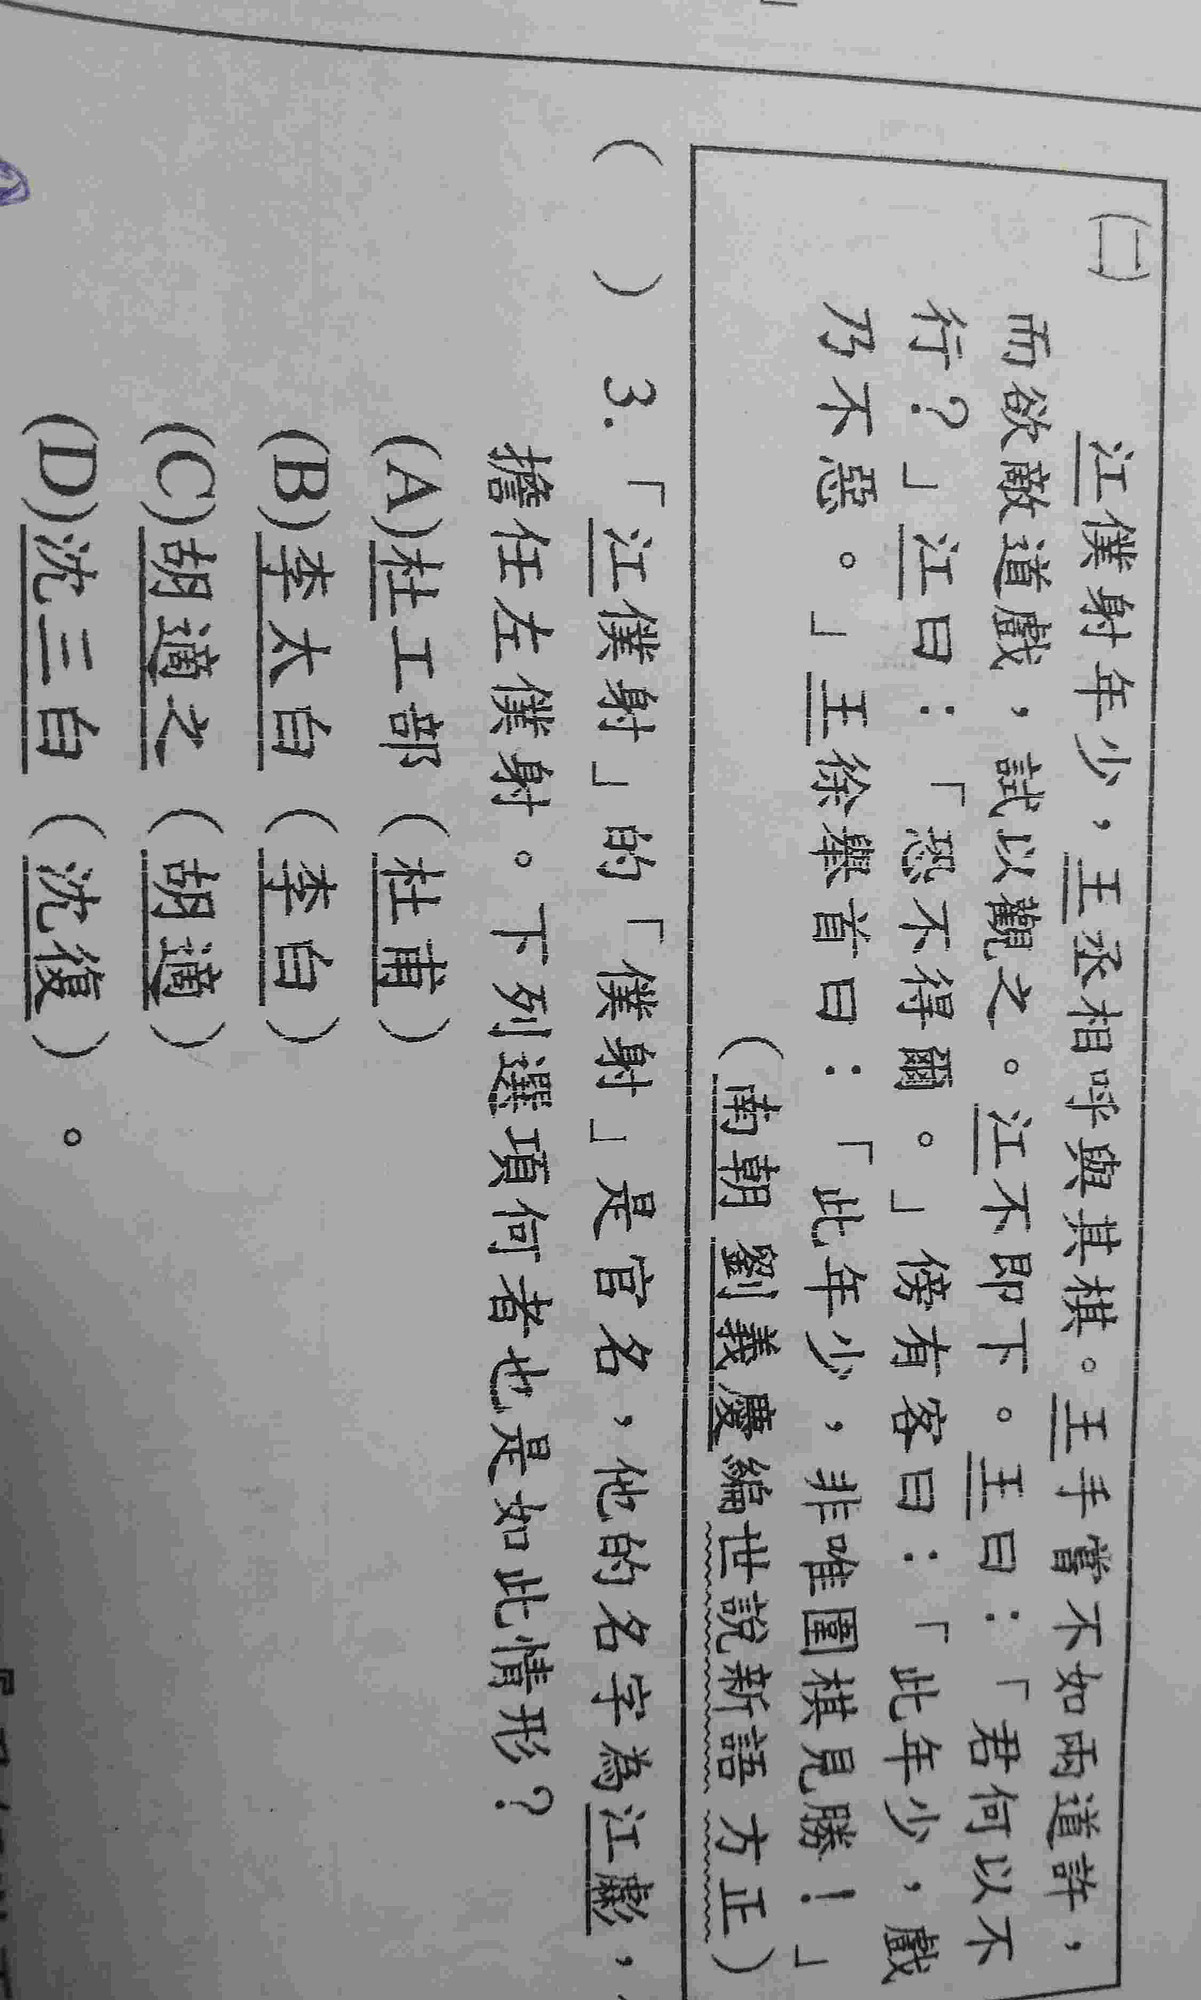 (二)
江僕射年少，王丞相呼與其棋。王手嘗不如兩道許，
而欲敵道戲，試以觀之。江不即下。王曰：「君何以不
行？」江曰：「恐不得爾。」傍有客曰：「此年少，戲
乃不惡。」王徐舉首曰：「此年少，非唯圍棋見勝！」
（南朝 劉義慶編世說新語 方正）
（　）3.「江僕射」的「僕射」是官名，他的名字為江虨，
擔任左僕射。下列選項何者也是如此情形？
(A)杜工部（杜甫）
(B)李太白（李白）
(C)胡適之（胡適）
(D)沈三白（沈復）。